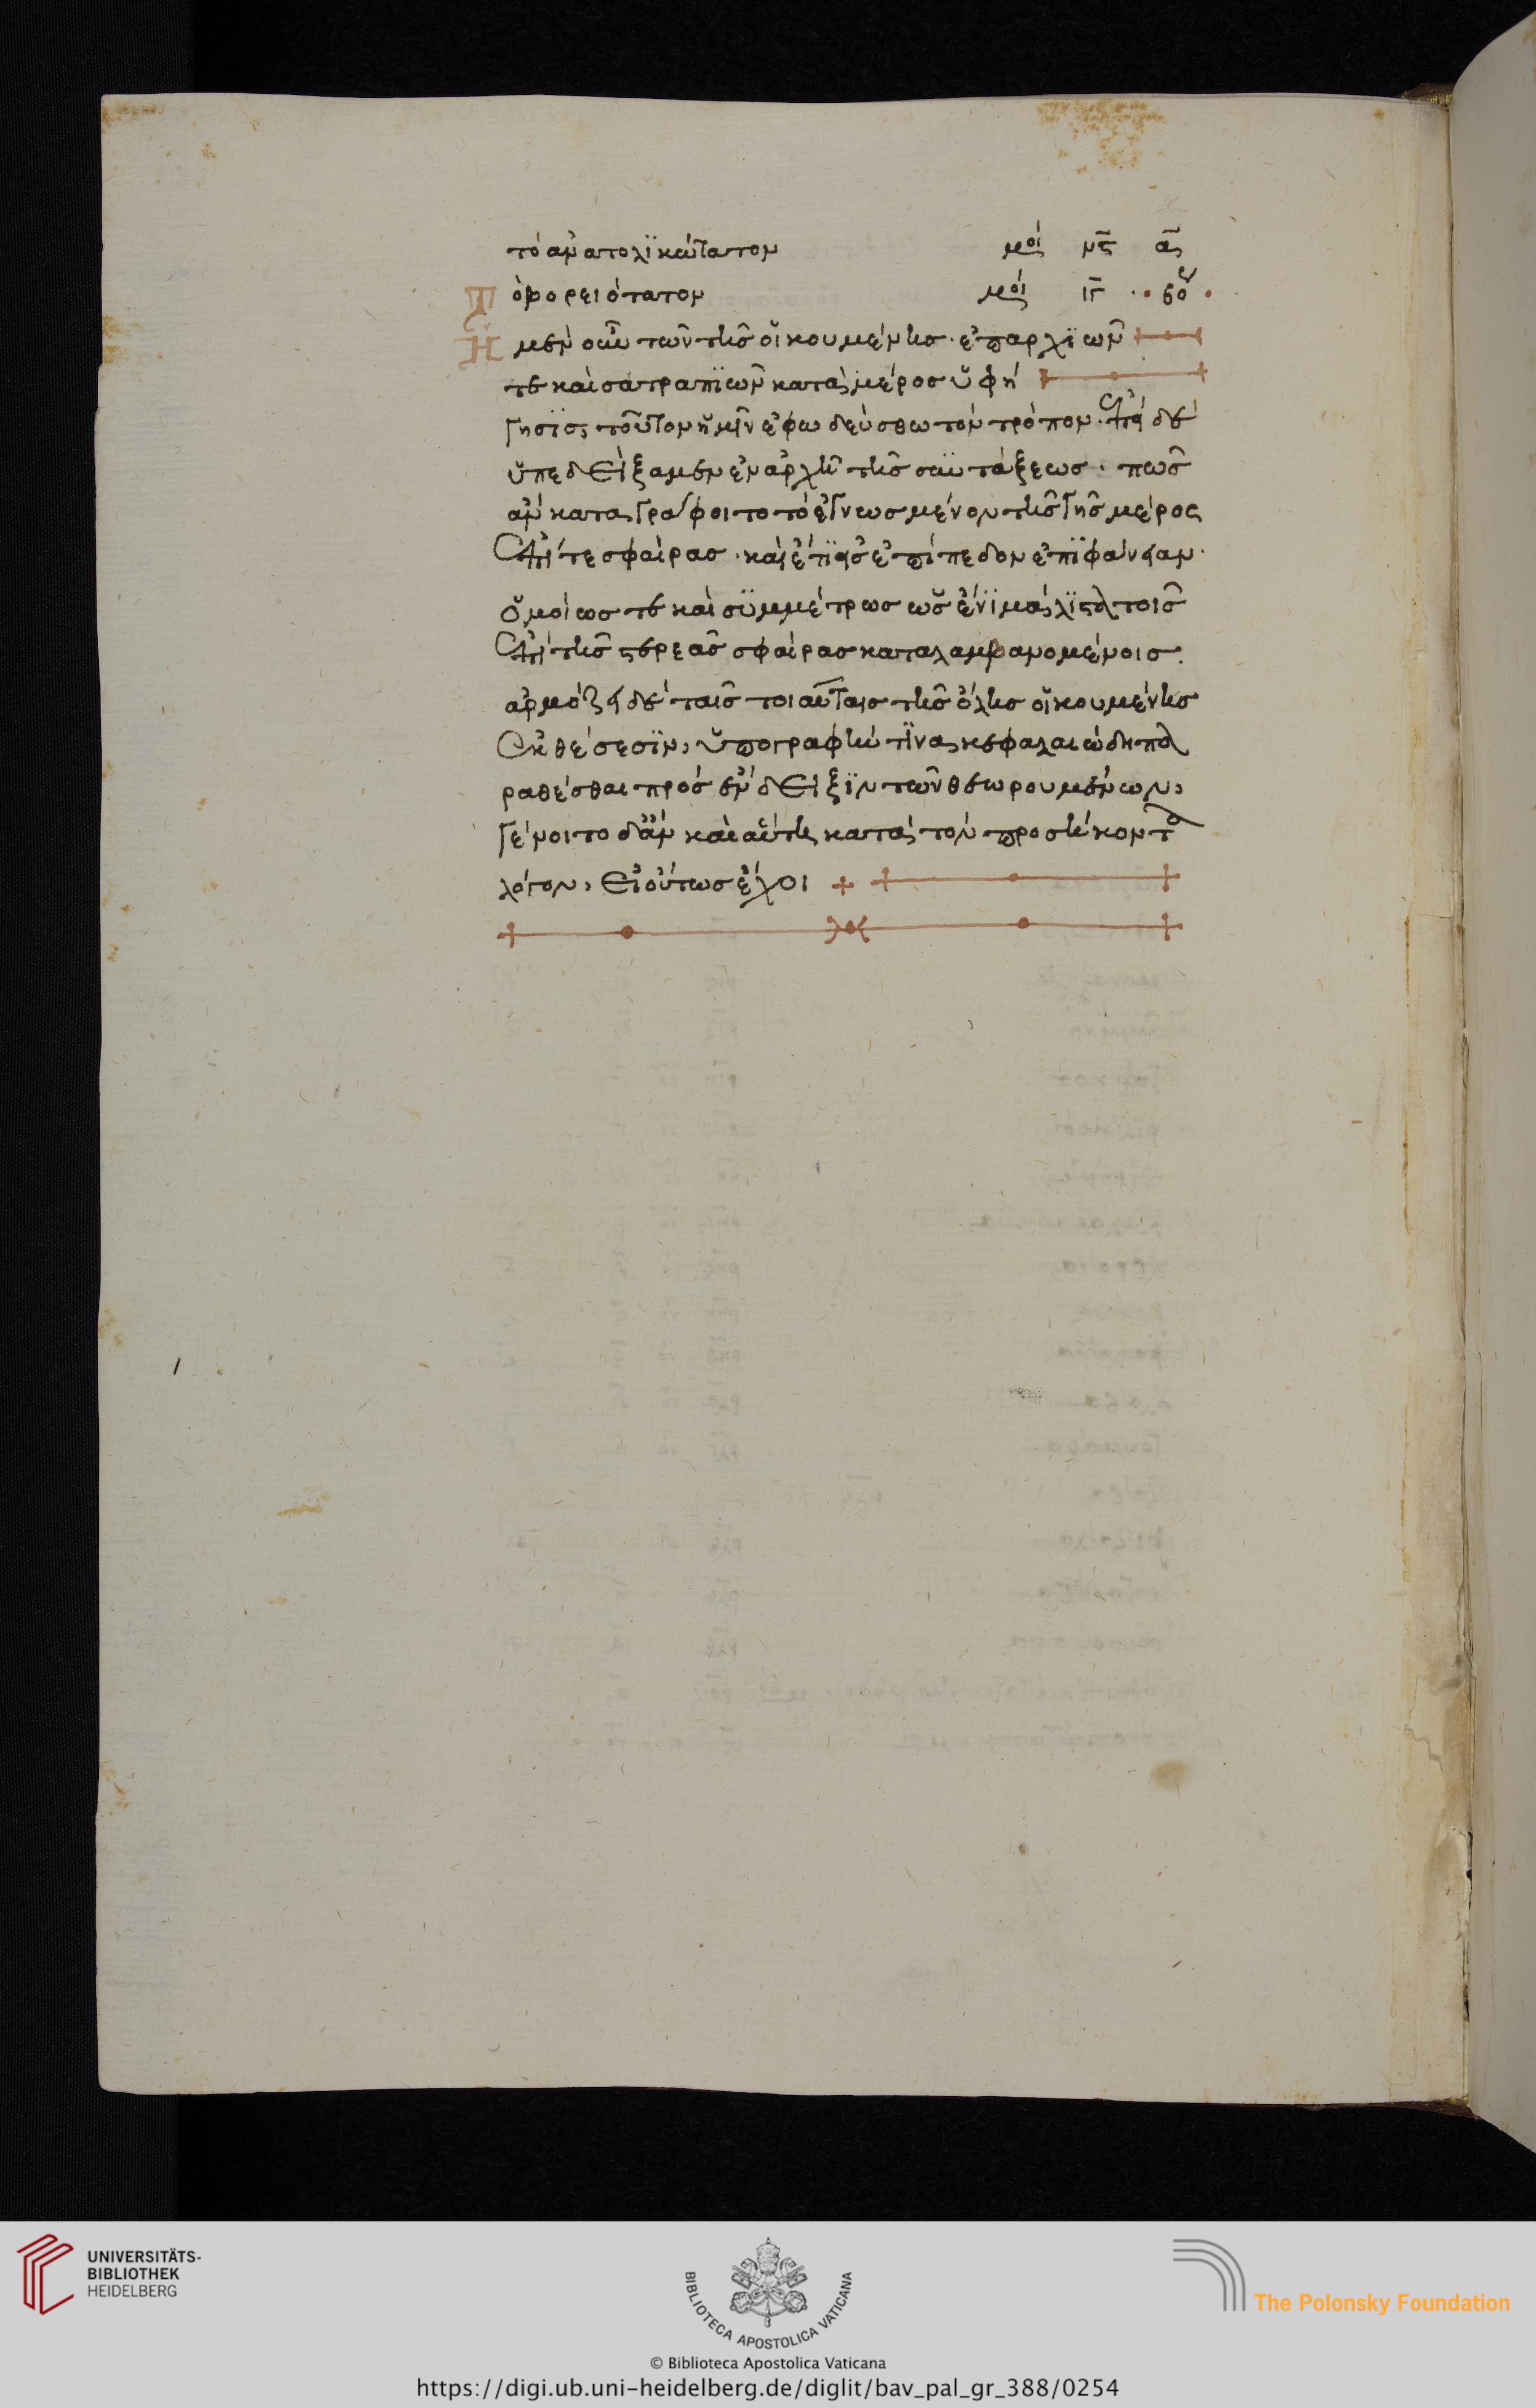 τὸ ἀνατολϊκώτατον μοί
Τὸ βορειότατον μοί
Ἡ μὲν οὖν τῶν τῆς οἰκουμένης ἐπαρχϊῶν
τε καὶ σατραπϊῶν κατὰ μέρος ὑφή
γησϊς τοῦτον ἡμῖν ἐφωδεύσθω τὸν τρόπον. ἐπεὶ δὲ
ὑπεδείξαμεν ἐν ἀρχῆ τῆς συντάξεως. πῶς
ἂν καταγράφοιτο τὸ ἐγνωσμένον τῆς γῆς μέρος
ἐπί τε σφαίρας. καὶ ἐπὶ τῆς ἐπίπεδον ἐπϊφάνειαν.
ὁμοίως τε καὶ συμμέτρως ὡς ἔνϊ μάλϊστα τοῖς
ἐπὶ τῆς στερεᾶς σφαίρας καταλαμβανομένοις.
ἁρμόζει δὲ ταῖς τοιαύταις τῆς ὅλης οἰκουμένης
ἐκθέσεσϊν, ὑπογραφήν τϊνα κεφαλαιώδη πα
ραθέσθαι πρὸς ἔνδειξϊν τῶν θεωρουμένων,
γένοιτο δ'ἂν καὶ αὐτὴ κατὰ τὸν προσήκοντα
λόγον, εἰ οὕτως ἔχοι
UNIVERSITÄTS-
BIBLIOTHEK
HEIDELBERG
BIBLIOTECA APOSTOLICA VATICANA
The Polonsky Foundation
© Biblioteca Apostolica Vaticana
https://digi.ub.uni-heidelberg.de/diglit/bav_pal_gr_388/0254